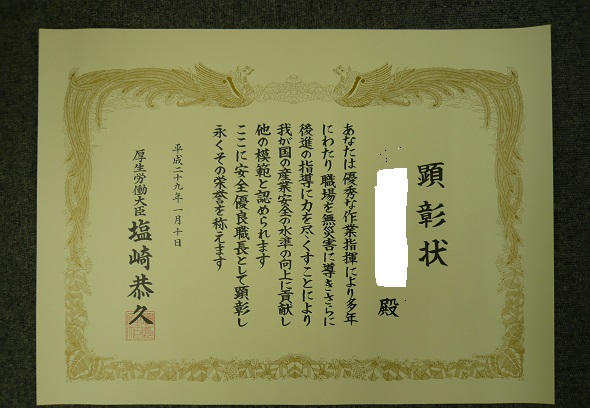 顕彰状
殿
あなたは優秀な作業指揮により多年
にわたり職場を無災害に導きさらに
後進の指導に力を尽くすことにより
我が国の産業安全の水準の向上に貢献し
他の模範と認められます
ここに安全優良職長として顕彰し
永くその栄誉を称えます
平成二十九年一月十日
厚生労働大臣 塩崎恭久